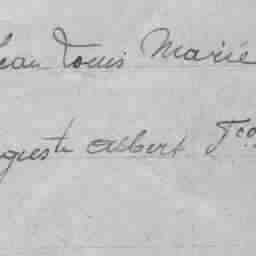 Jean Louis Marie
Auguste Albert